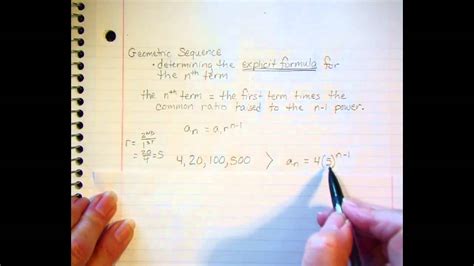 Geometric Sequence
• determining the explicit formula for
the nth term
the nth term = the first term times the
common ratio raised to the n-1 power.
aₙ = a₁rⁿ⁻¹
r = 2ND/1ST
= 20/4 = 5
4, 20, 100, 500 > aₙ = 4(5)ⁿ⁻¹